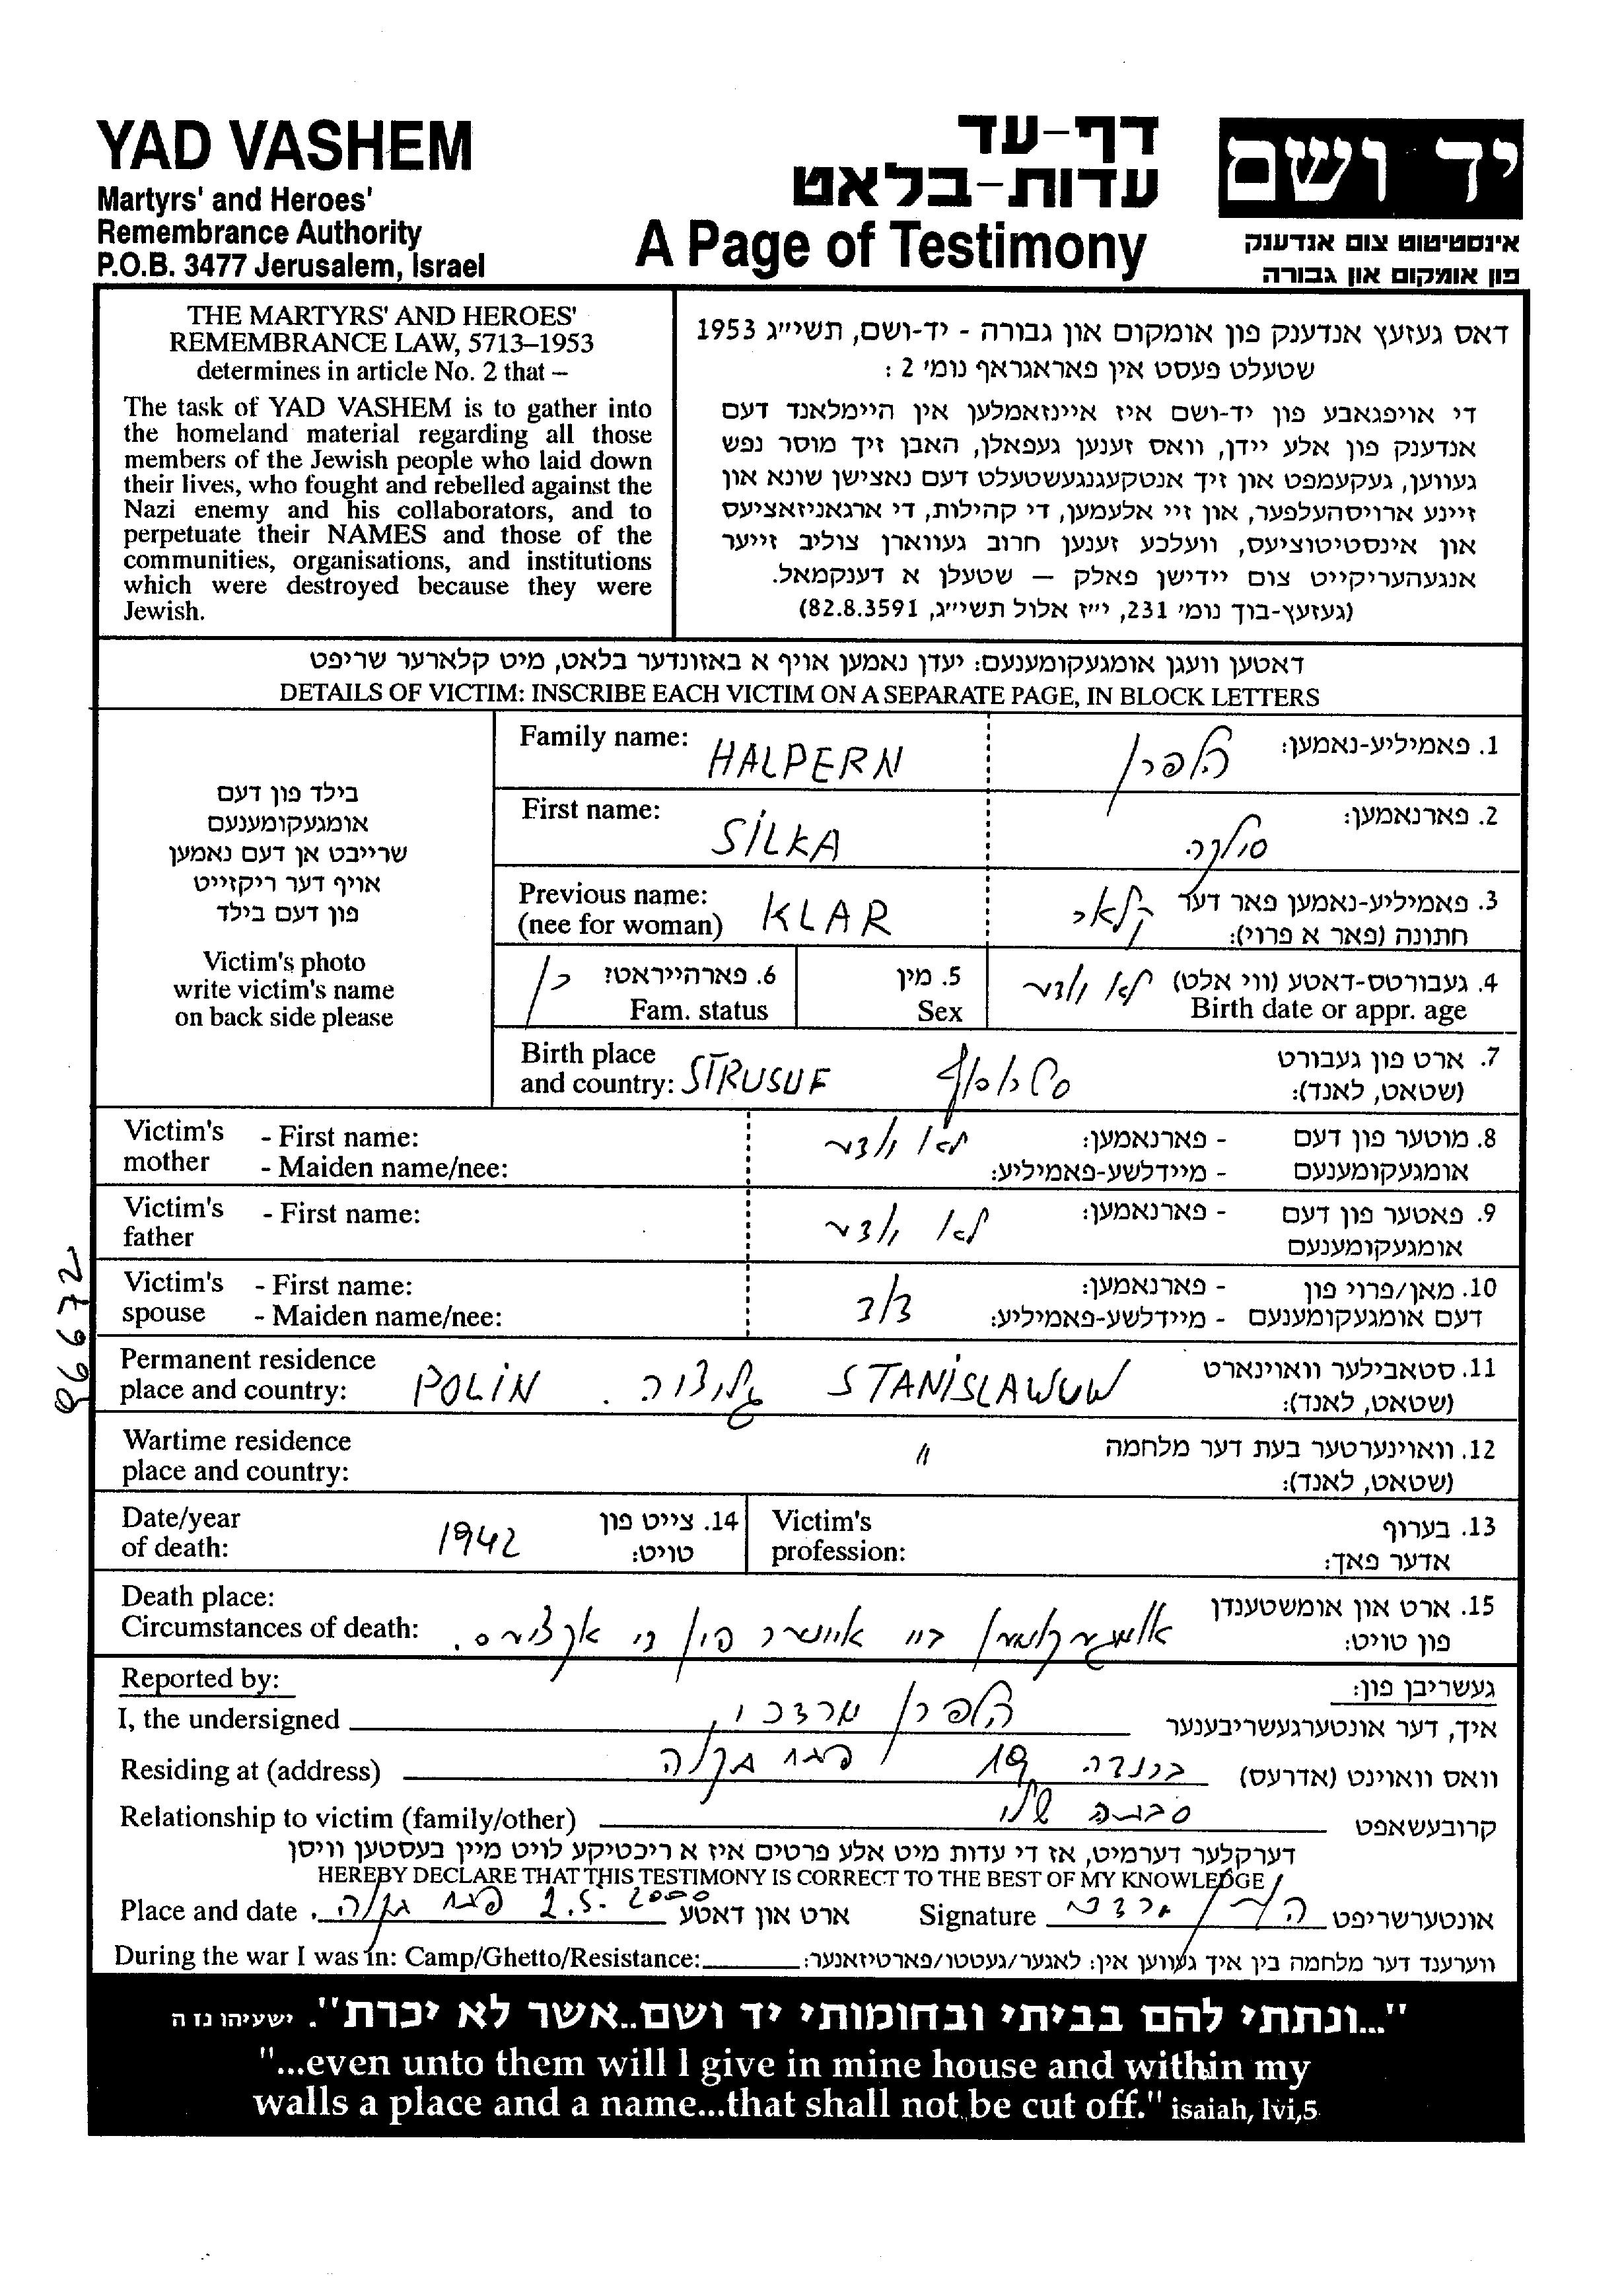 YAD VASHEM
Martyrs' and Heroes'
Remembrance Authority
P.O.B. 3477 Jerusalem, Israel
דף-עד
עדות-בלאט
A Page of Testimony
יד ושם
אינסטיטוט צום אנדענק
פון אומקום און גבורה
THE MARTYRS' AND HEROES'
REMEMBRANCE LAW, 5713–1953
determines in article No. 2 that –
The task of YAD VASHEM is to gather into
the homeland material regarding all those
members of the Jewish people who laid down
their lives, who fought and rebelled against the
Nazi enemy and his collaborators, and to
perpetuate their NAMES and those of the
communities, organisations, and institutions
which were destroyed because they were
Jewish.
דאס געזעץ אנדענק פון אומקום און גבורה - יד-ושם, תשי״ג 1953
שטעלט פעסט אין פאראגראף נומ׳ 2 :
די אויפגאבע פון יד-ושם איז איינזאמלען אין היימלאנד דעם
אנדענק פון אלע יידן, וואס זענען געפאלן, האבן זיך מוסר נפש
געווען, געקעמפט און זיך אנטקעגנגעשטעלט דעם נאצישן שונא און
זיינע ארויסהעלפער, און זיי אלעמען, די קהילות, די ארגאניזאציעס
און אינסטיטוציעס, וועלכע זענען חרוב געווארן צוליב זייער
אנגעהעריקייט צום יידישן פאלק — שטעלן א דענקמאל.
(געזעץ-בוך נומ׳ 231, י״ז אלול תשי״ג, 82.8.3591)
דאטען וועגן אומגעקומענעם: יעדן נאמען אויף א באזונדער בלאט, מיט קלארער שריפט
DETAILS OF VICTIM: INSCRIBE EACH VICTIM ON A SEPARATE PAGE, IN BLOCK LETTERS
בילד פון דעם
אומגעקומענעם
שרייבט אן דעם נאמען
אויף דער ריקזייט
פון דעם בילד
Victim's photo
write victim's name
on back side please
Family name: HALPERN הלפרן 1. פאמיליע-נאמען:
First name: SILKA סילקה 2. פארנאמען:
Previous name: 3. פאמיליע-נאמען פאר דער
(nee for woman) KLAR קלאר חתונה (פאר א פרוי):
6. פארהייראט? כן
Fam. status
5. מין
Sex
4. געבורטס-דאטע (ווי אלט) לא ידוע
Birth date or appr. age
Birth place 7. ארט פון געבורט
and country: STRUSUF (שטאט, לאנד):
Victim's - First name: לא ידוע - פארנאמען: 8. מוטער פון דעם
mother - Maiden name/nee: - מיידלשע-פאמיליע: אומגעקומענעם
Victim's - First name: לא ידוע - פארנאמען: 9. פאטער פון דעם
father אומגעקומענעם
Victim's - First name: דוד - פארנאמען: 10. מאן/פרוי פון
spouse - Maiden name/nee: - מיידלשע-פאמיליע: דעם אומגעקומענעם
Permanent residence 11. סטאבילער וואוינארט
place and country: POLIN גליציה. STANISLAWUW (שטאט, לאנד):
Wartime residence " 12. וואוינערטער בעת דער מלחמה
place and country: (שטאט, לאנד):
Date/year 14. צייט פון
of death: 1942 טויט:
Victim's 13. בערוף
profession: אדער פאך:
Death place: 15. ארט און אומשטענדן
Circumstances of death: אומגעקומען ביי איינער פון די אקציעס. פון טויט:
Reported by: געשריבן פון:
I, the undersigned הלפרן מרדכי איך, דער אונטערגעשריבענער
Residing at (address) 19 פתח תקוה וואס וואוינט (אדרעס)
Relationship to victim (family/other) סבתה שלי קרובעשאפט
דערקלער דערמיט, אז די עדות מיט אלע פרטים איז א ריכטיקע לויט מיין בעסטען וויסן
HEREBY DECLARE THAT THIS TESTIMONY IS CORRECT TO THE BEST OF MY KNOWLEDGE
Place and date פתח תקוה 2.5.2000 ארט און דאטע Signature הלפרן מרדכי אונטערשריפט
During the war I was in: Camp/Ghetto/Resistance: ווערענד דער מלחמה בין איך געווען אין: לאגער/געטטו/פארטיזאנער:
"...ונתתי להם בביתי ובחומותי יד ושם..אשר לא יכרת". ישעיהו נז ה
"...even unto them will I give in mine house and within my
walls a place and a name...that shall not be cut off." isaiah, lvi,5